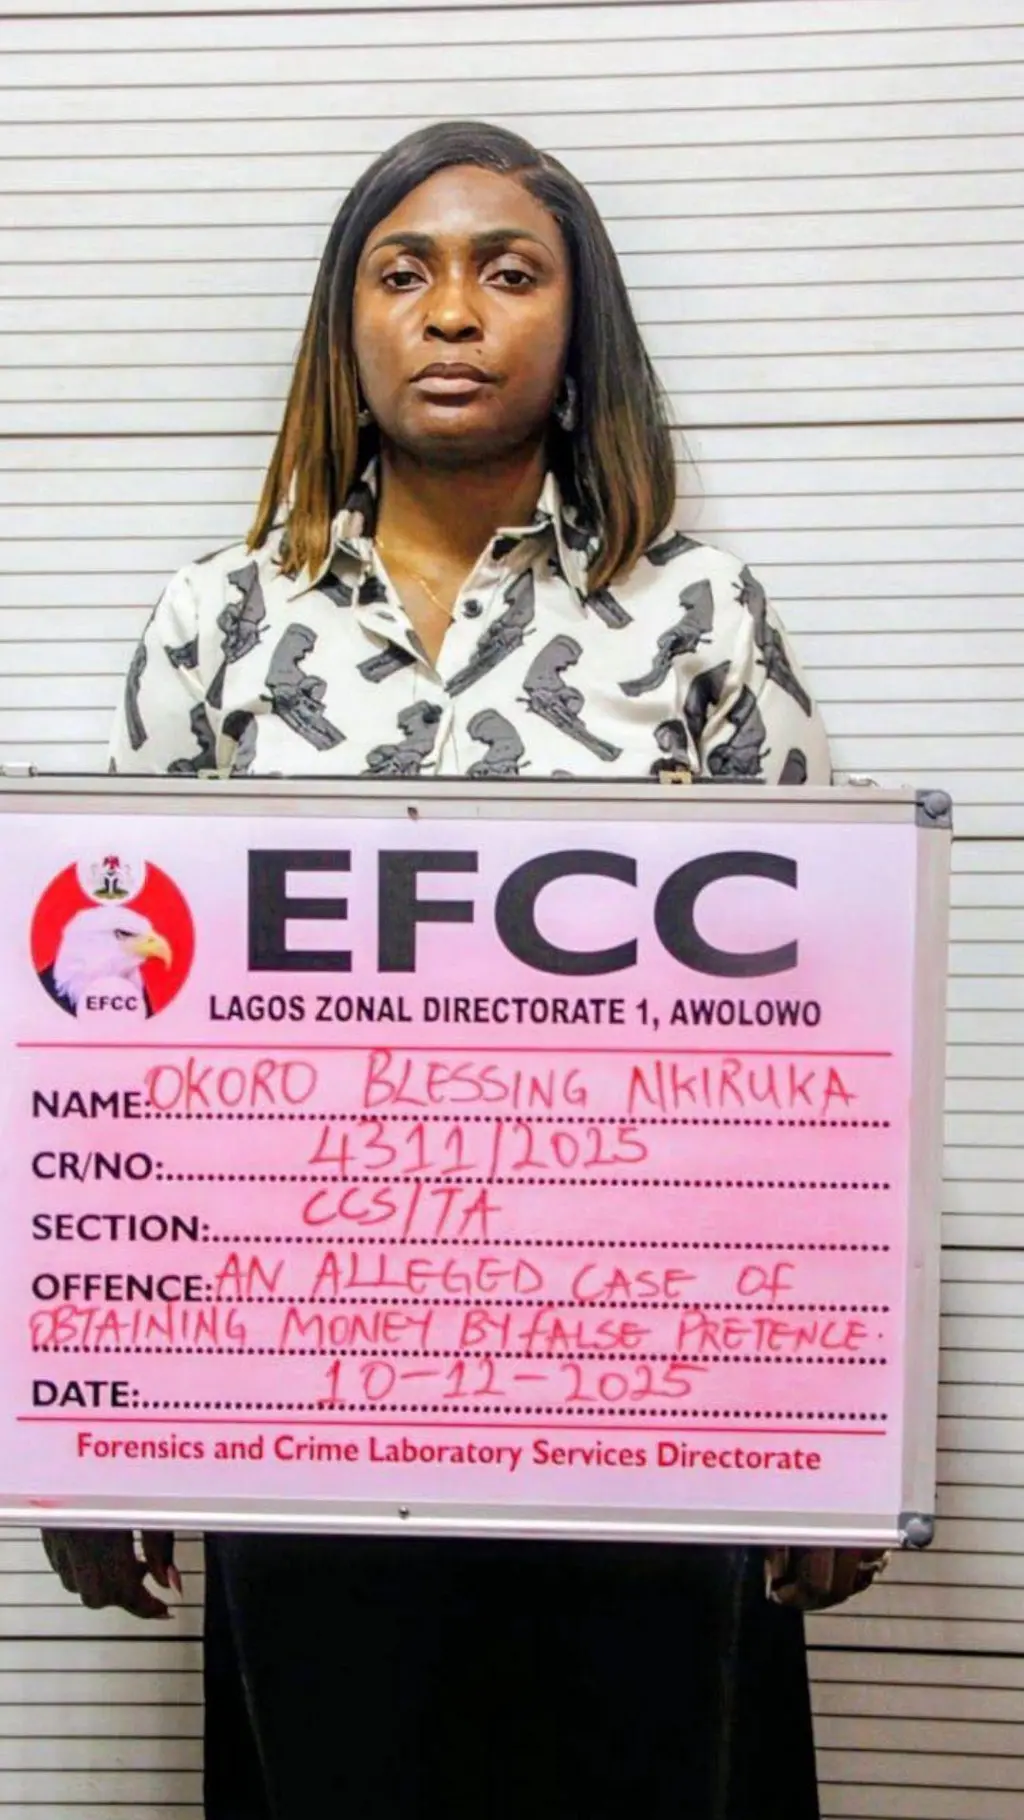 EFCC
EFCC
LAGOS ZONAL DIRECTORATE 1, AWOLOWO
NAME: OKORO BLESSING NKIRUKA
CR/NO: 4311/2025
SECTION: CCS/TA
OFFENCE: AN ALLEGED CASE OF
OBTAINING MONEY BY FALSE PRETENCE.
DATE: 10-12-2025
Forensics and Crime Laboratory Services Directorate